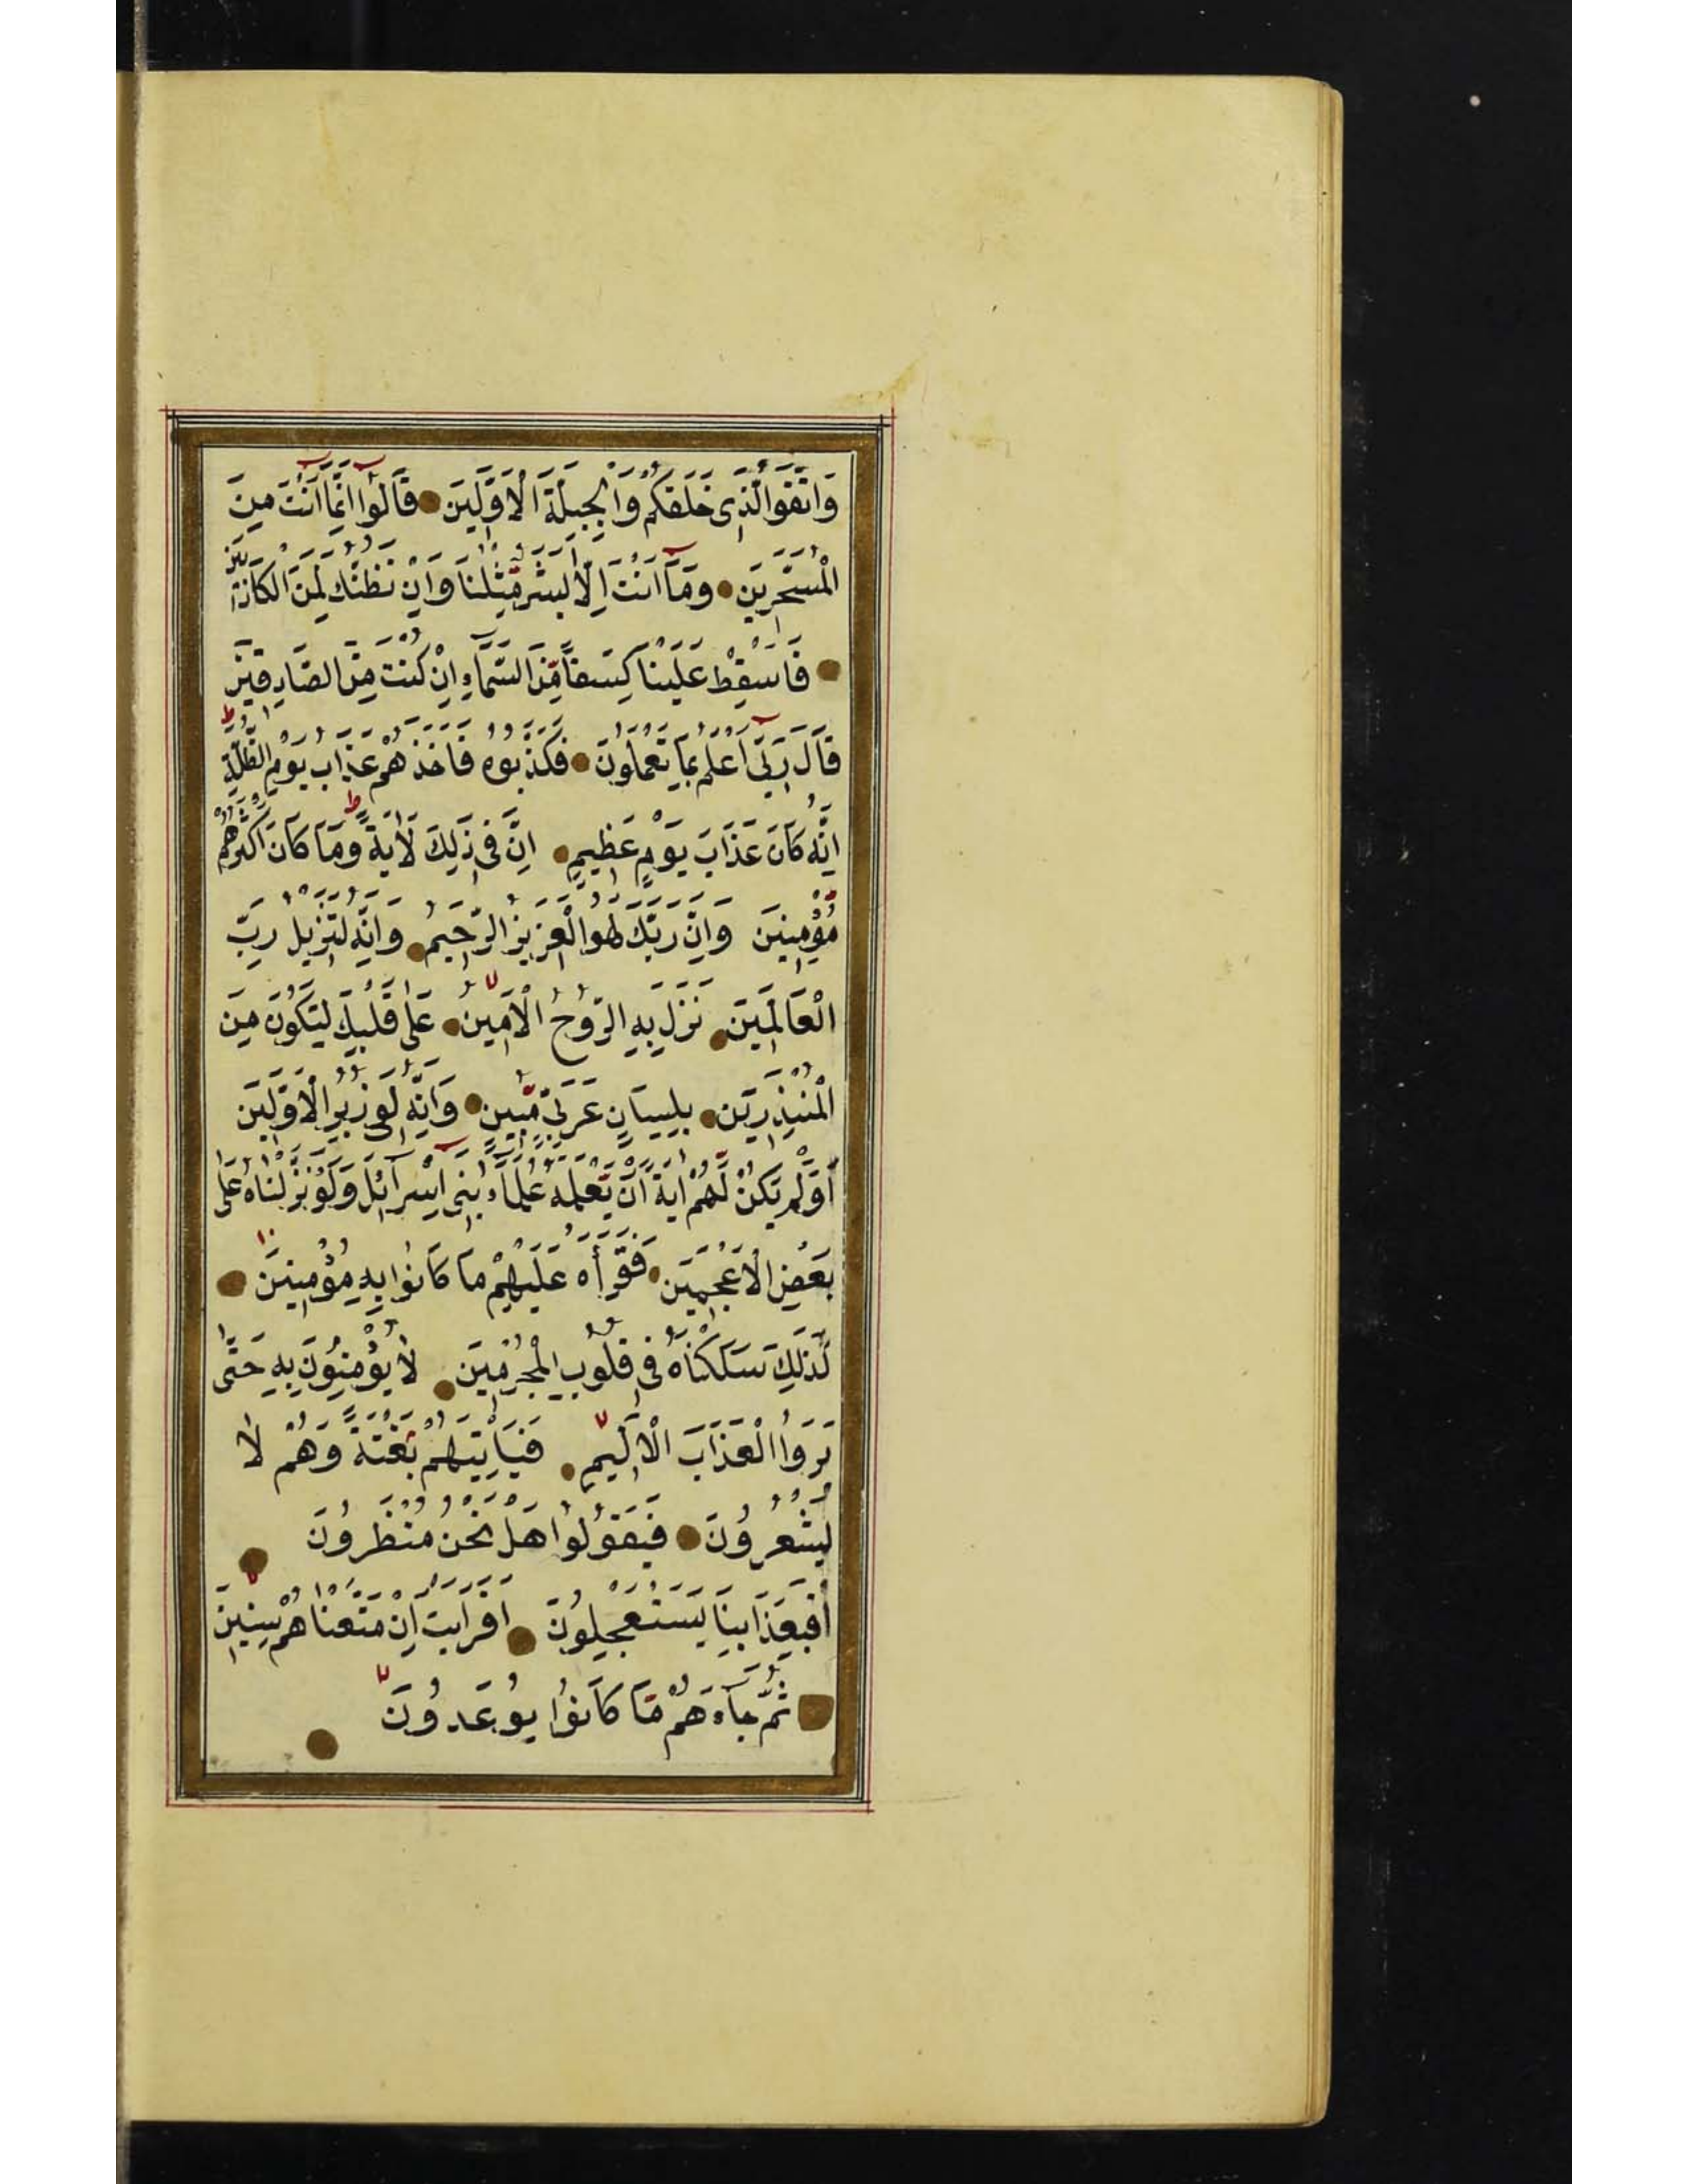 وَاتَّقُوا الَّذِى خَلَقَكُمْ وَالْجِبِلَّةَ الْاَوَّلِينَ قَالُوٓا اِنَّمَٓا اَنْتَ مِنَ
الْمُسَحَّرِينَ وَمَٓا اَنْتَ اِلَّا بَشَرٌ مِّثْلُنَا وَاِنْ نَظُنُّكَ لَمِنَ الْكَاذِبِينَ
فَاَسْقِطْ عَلَيْنَا كِسَفًا مِّنَ السَّمَٓاءِ اِنْ كُنْتَ مِنَ الصَّادِقِينَ
قَالَ رَبِّىٓ اَعْلَمُ بِمَا تَعْمَلُونَ فَكَذَّبُوهُ فَاَخَذَهُمْ عَذَابُ يَوْمِ الظُّلَّةِ ط
اِنَّهُ كَانَ عَذَابَ يَوْمٍ عَظِيمٍ اِنَّ فِى ذَلِكَ لَاٰيَةً ط وَمَا كَانَ اَكْثَرُهُمْ
مُّؤْمِنِينَ وَاِنَّ رَبَّكَ لَهُوَ الْعَزِيزُ الرَّحِيمُ وَاِنَّهُ لَتَنْزِيلُ رَبِّ
الْعَالَمِينَ نَزَلَ بِهِ الرُّوحُ الْاَمِينُ لا عَلَى قَلْبِكَ لِتَكُونَ مِنَ
الْمُنْذِرِينَ بِلِسَانٍ عَرَبِىٍّ مُّبِينٍ وَاِنَّهُ لَفِى زُبُرِ الْاَوَّلِينَ
اَوَلَمْ يَكُنْ لَّهُمْ اٰيَةً اَنْ يَّعْلَمَهُ عُلَمَٓاءُ بَنِىٓ اِسْرَٓائِلَ وَلَوْ نَزَّلْنَاهُ عَلَى
بَعْضِ الْاَعْجَمِينَ فَقَرَاَهُ عَلَيْهِمْ مَا كَانُوا بِهِ مُؤْمِنِينَ
كَذَلِكَ سَلَكْنَاهُ فِى قُلُوبِ الْمُجْرِمِينَ لَا يُؤْمِنُونَ بِهِ حَتَّى
يَرَوُا الْعَذَابَ الْاَلِيمَ لا فَيَاْتِيَهُمْ بَغْتَةً وَهُمْ لَا
يَشْعُرُونَ فَيَقُولُوا هَلْ نَحْنُ مُنْظَرُونَ
اَفَبِعَذَابِنَا يَسْتَعْجِلُونَ اَفَرَاَيْتَ اِنْ مَتَّعْنَاهُمْ سِنِينَ لا
ثُمَّ جَٓاءَهُمْ مَّا كَانُوا يُوعَدُونَ لا